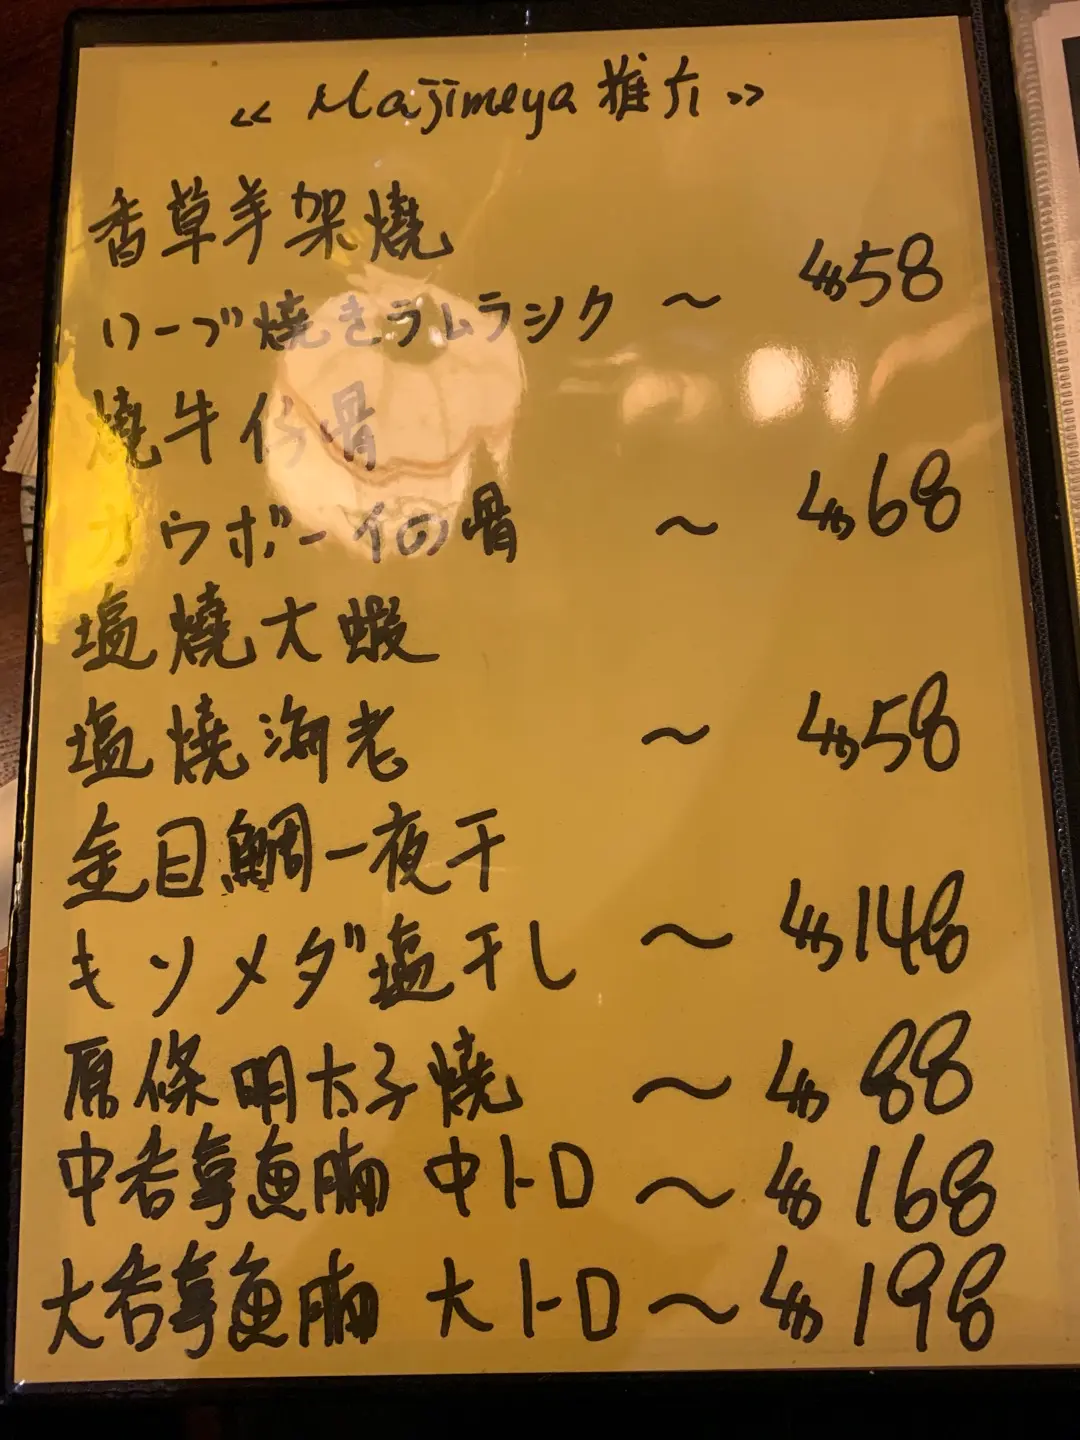 << Majimeya 推介 >>
香草羊架燒
ハーブ焼きラムラシク ～ $58
燒牛仔骨
カウボーイの骨 ～ $68
塩燒大蝦
塩焼海老 ～ $58
金目鯛一夜干
キソメダ塩干し ～ $148
原條明太子燒 ～ $88
中吞拿魚腩 中トロ ～ $168
大吞拿魚腩 大トロ ～ $198